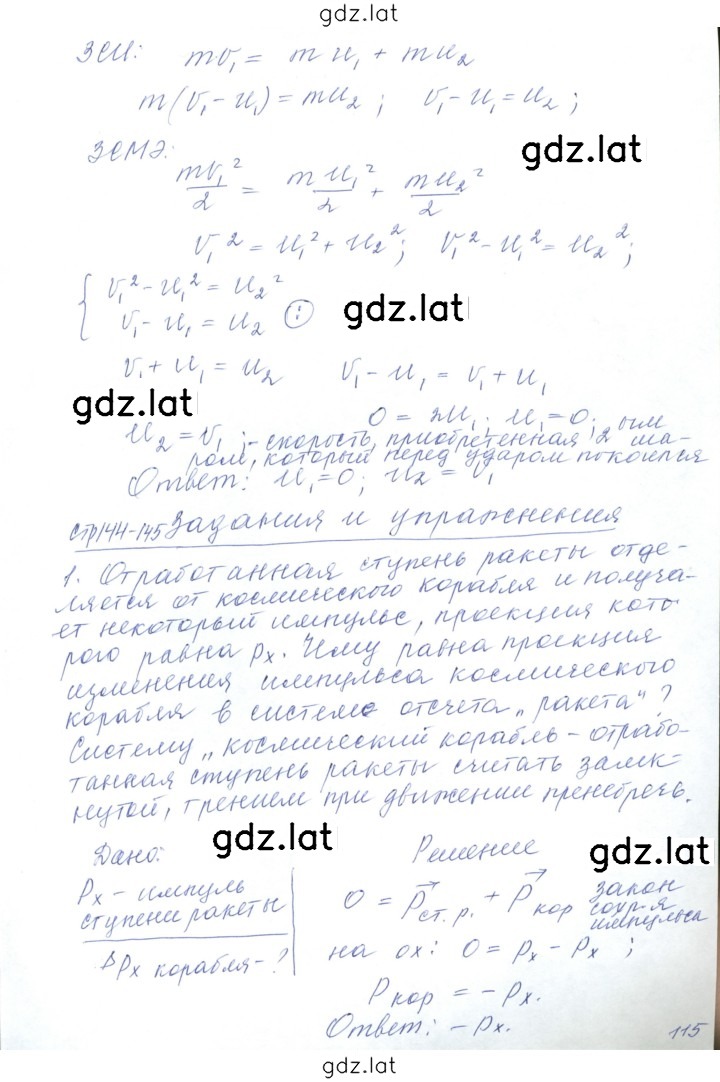 gdz.lat
ЗСИ: mv₁ = mu₁ + mu₂
m(v₁ - u₁) = mu₂ ; v₁ - u₁ = u₂ ;
gdz.lat
ЗСМЭ:
mv₁²/2 = mu₁²/2 + mu₂²/2
v₁² = u₁² + u₂² ; v₁² - u₁² = u₂² ;
{ v₁² - u₁² = u₂²
v₁ - u₁ = u₂ (:)
gdz.lat
v₁ + u₁ = u₂ v₁ - u₁ = v₁ + u₁
gdz.lat
0 = 2u₁ ; u₁ = 0 ;
u₂ = v₁ ; - скорость, приобретенная 2 -ым ша-
ром, который перед ударом покоился
Ответ: u₁ = 0 ; u₂ = v₁
стр144-145 Задания и упражнения
1. Отработанная ступень ракеты отде-
ляется от космического корабля и получа-
ет некоторый импульс, проекция кото
рого равна pₓ. Чему равна проекция
изменения импульса космического
корабля в системе отсчета „ракета"?
Систему „космический корабль - отрабо-
танная ступень ракеты считать замк-
нутой, трением при движении пренебречь.
gdz.lat
Дано: Решение
gdz.lat
Pₓ - импуль
ступени ракеты
ΔPₓ корабля - ?
0 = P⃗ст.р. + P⃗кор закон
сохр-я
импульса
на ox: 0 = pₓ - Pₓ ;
Pкор = - Pₓ.
Ответ: - Pₓ.
115
gdz.lat